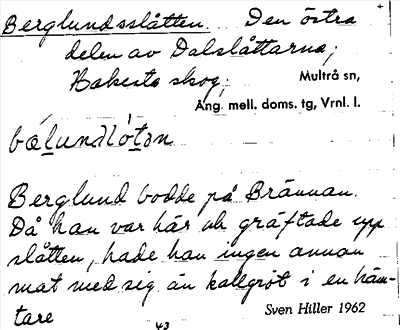 Berglundsslåtten. Den östra
delen av Dalslåttarna;
Hakesta skog; Multrå sn,
Ång. mell. doms. tg, Vrnl. l.
Berglund bodde på Brännan.
Då han var här och gräftade upp
slåtten, hade han ingen annan
mat med sig än kallgröt i en häm-
tare Sven Hiller 1962
43